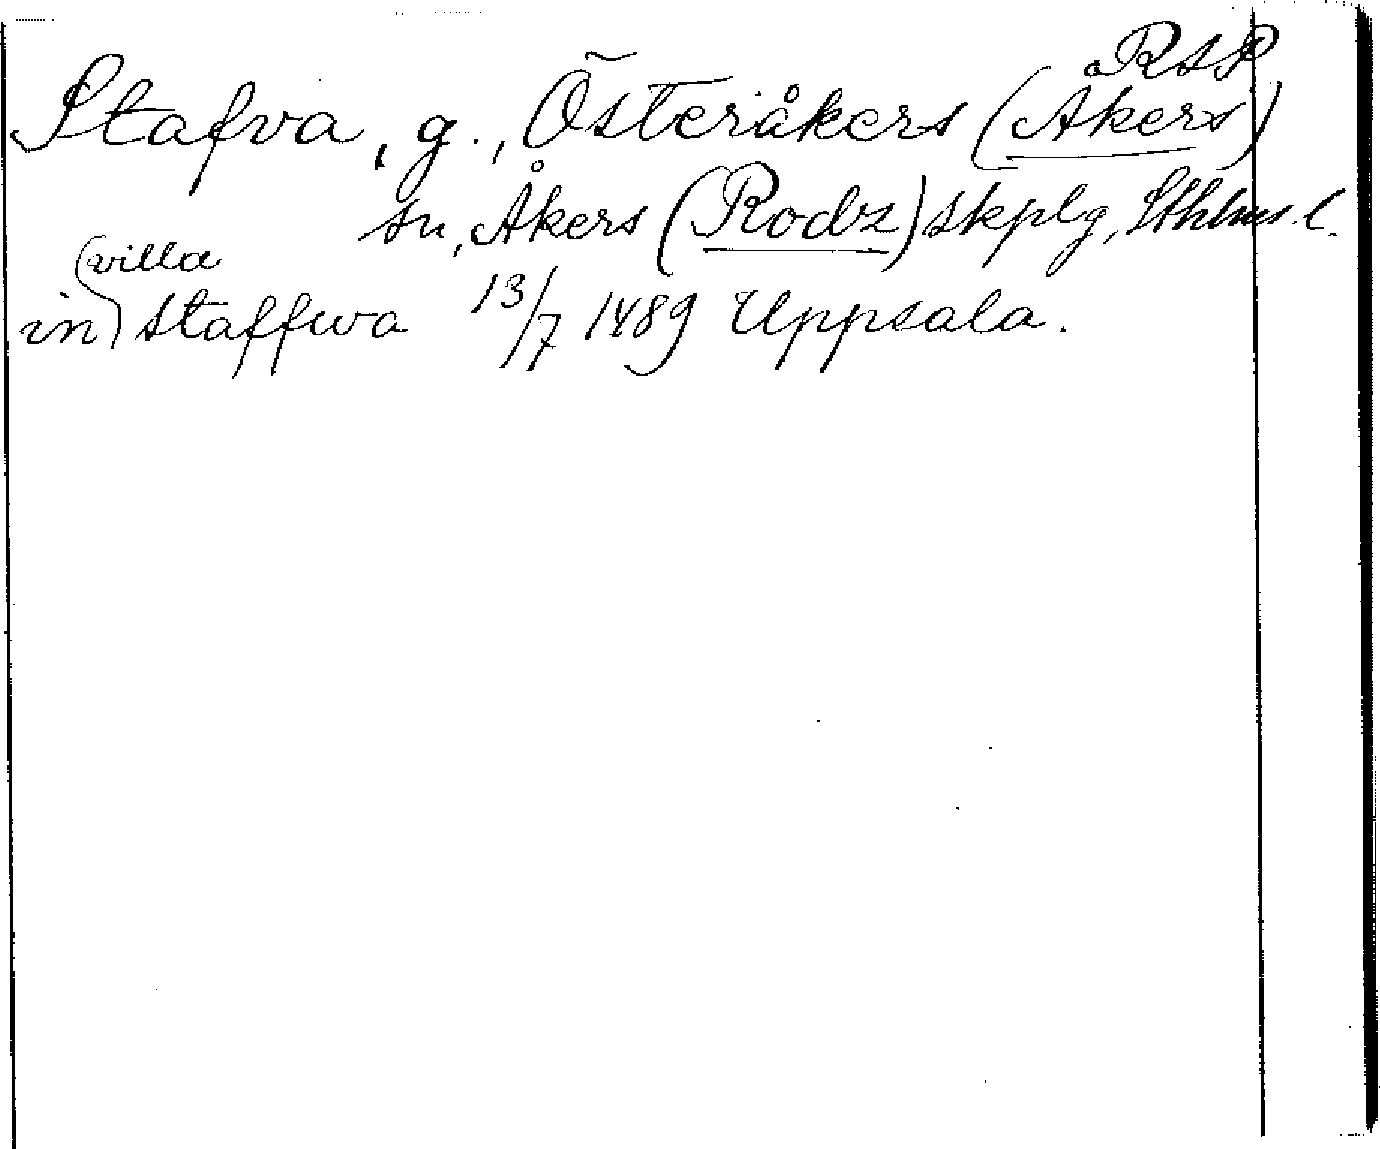 RSP
Stafva, g., Österåkers (Åkers)
sn, Åkers (Rodz) skplg, Sthlms l.
(villa
in) staffwa 13/7 1489 Uppsala.